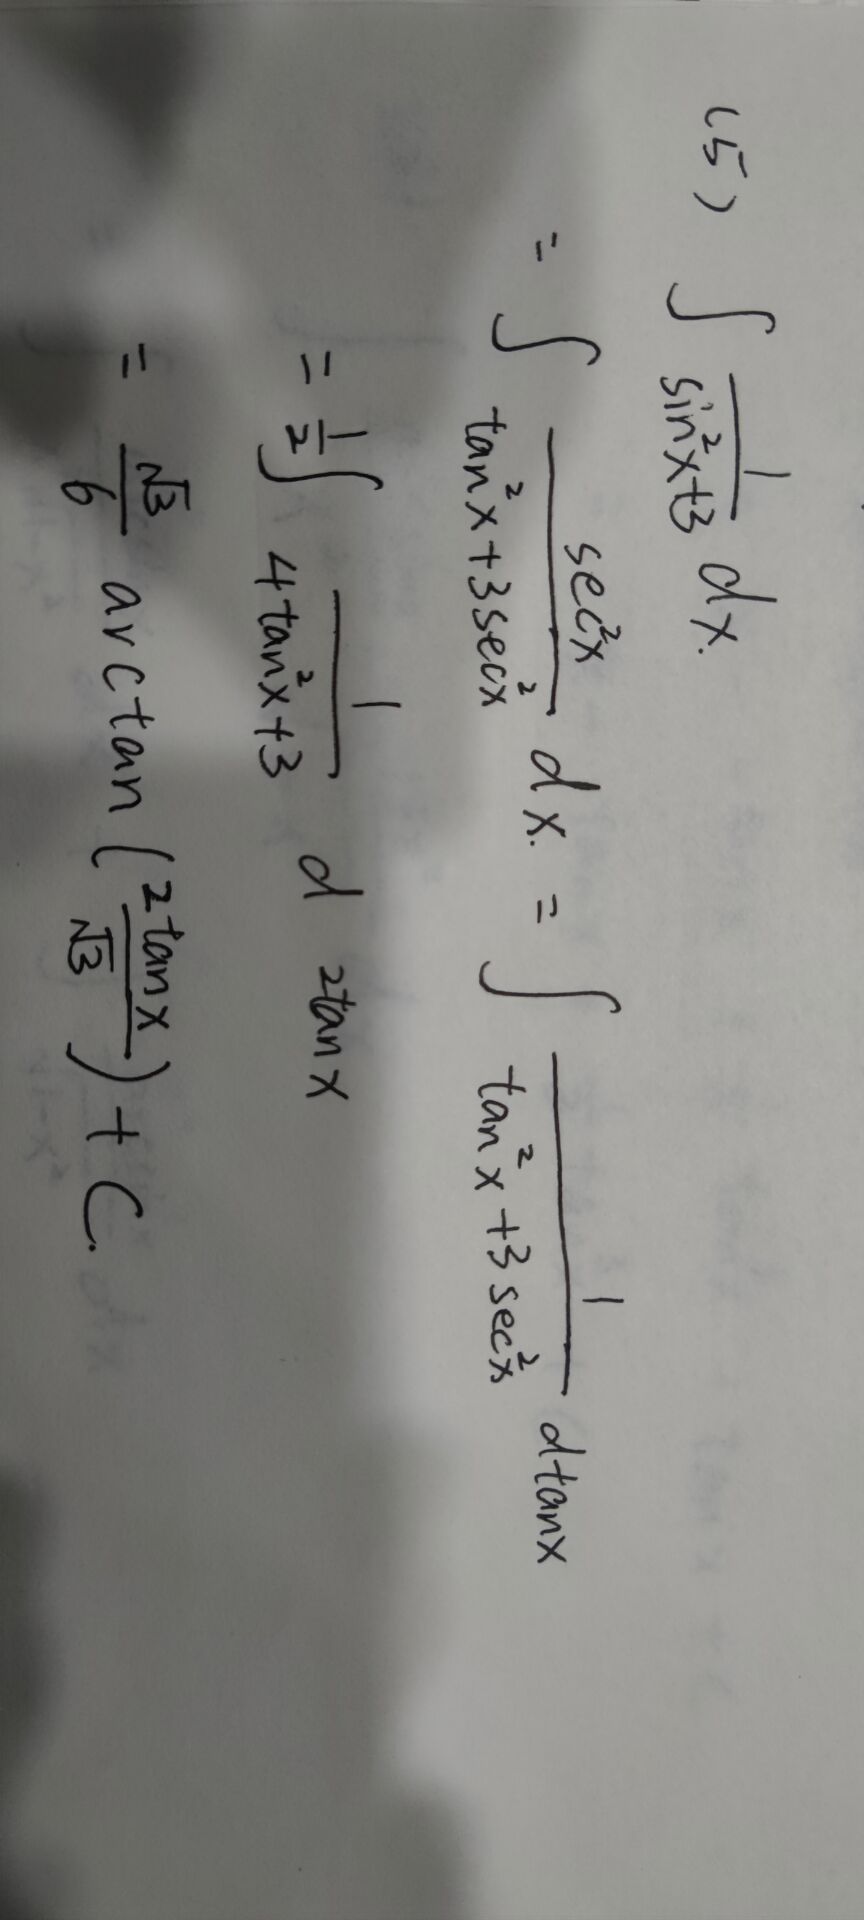 (5) ∫ 1/(sin²x+3) dx.
= ∫ sec²x/(tan²x+3secx²) dx. = ∫ 1/(tan²x+3sec²x) dtanx
= 1/2 ∫ 1/(4tan²x+3) d 2tanx
= √3/6 arctan (2tanx/√3) + C.